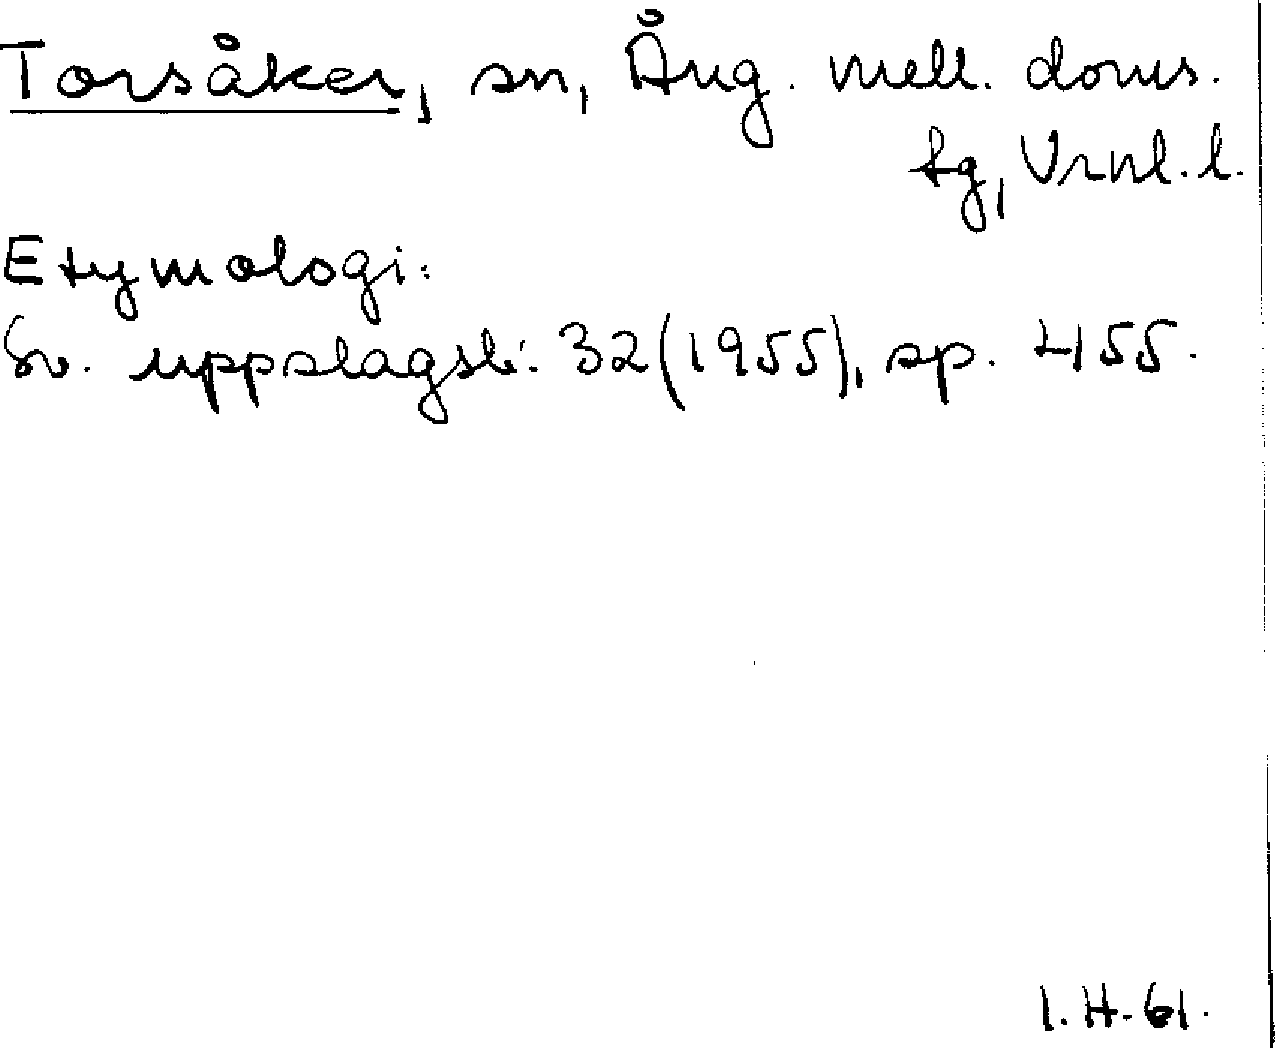 Torsåker, sn, Ång. mell. doms.
tg, Vrnl. l.
Etymologi:
Sv. uppslagsb. 32(1955), sp. 455.
I. H. 61.